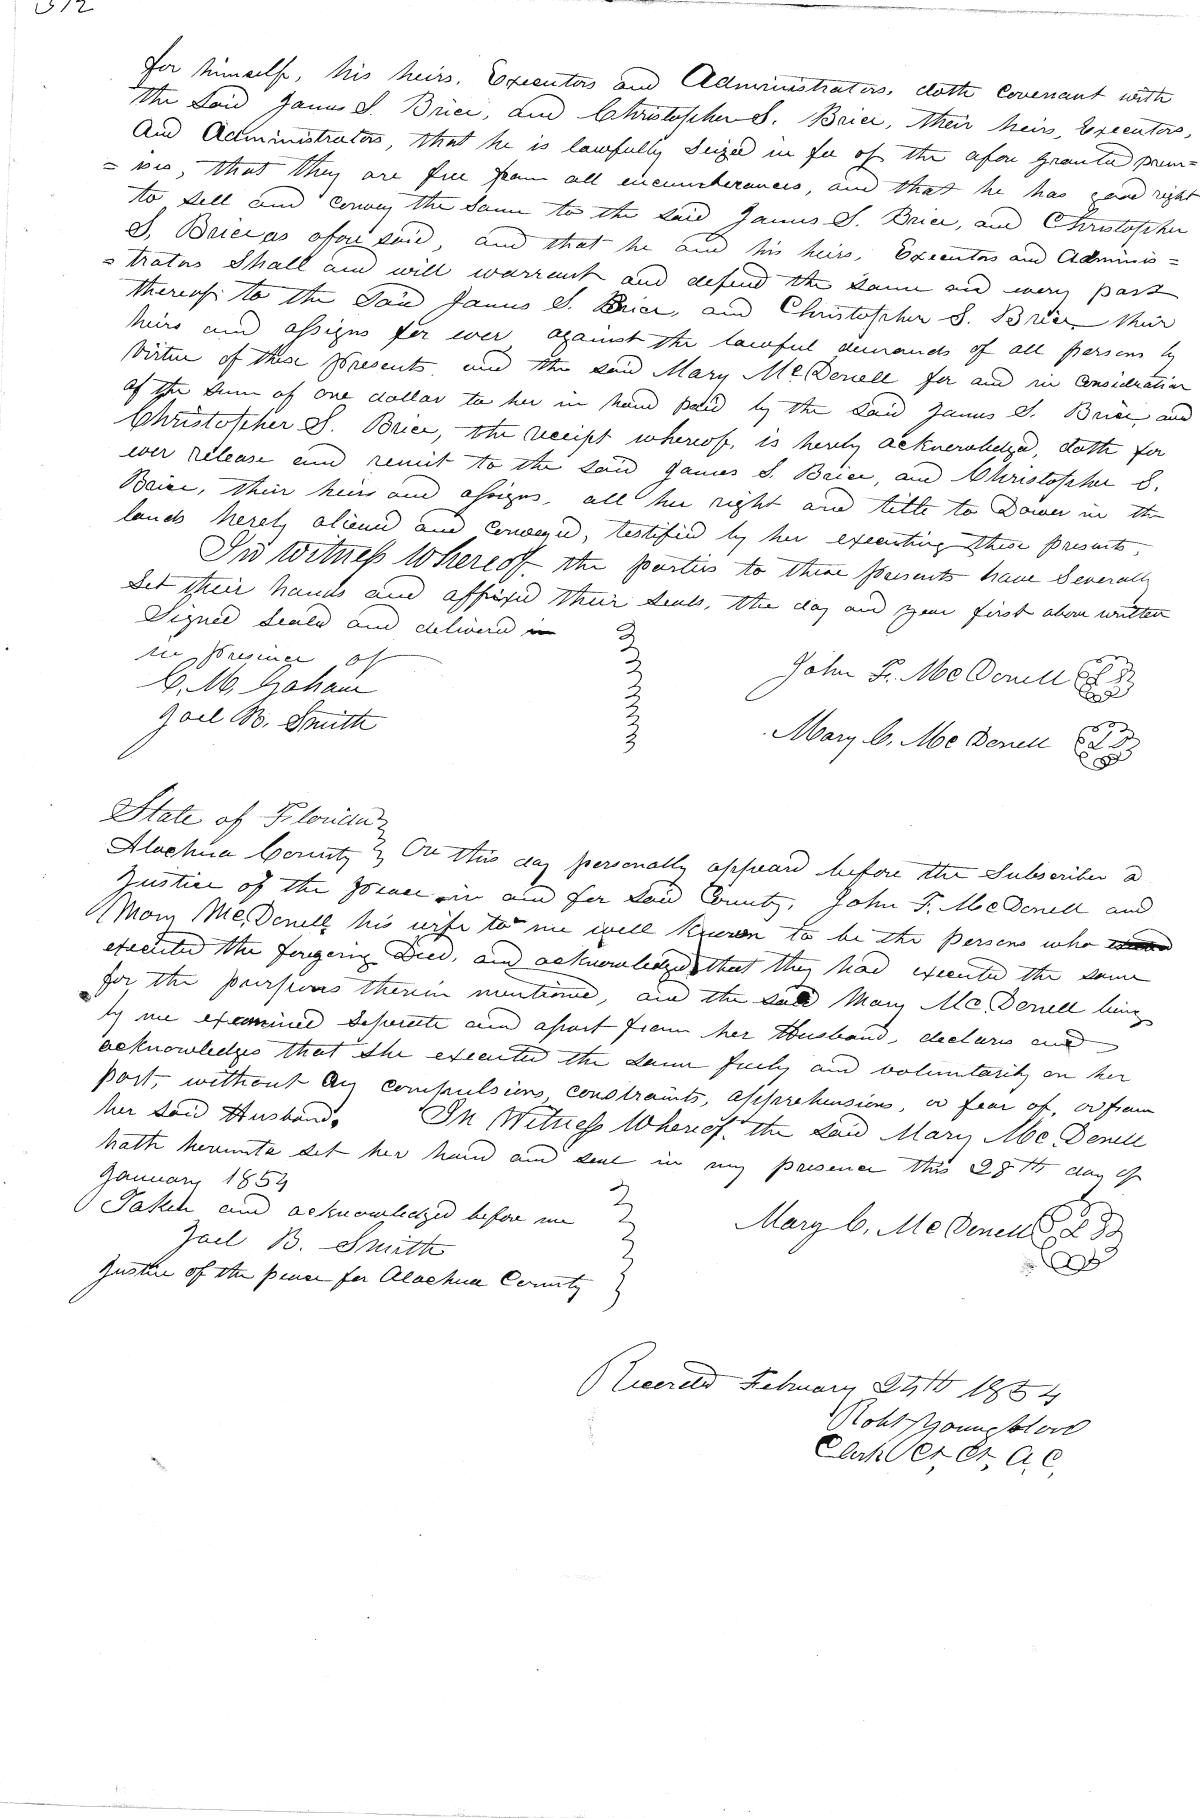 312
for himself, his heirs, Executors and Administrators, doth covenant with
the Said James S. Brice, and Christopher S. Brice, their heirs, Executors,
And Administrators, that he is lawfully Seized in fee of the afore granted prem=
=ises, that they are free from all encumberances, and that he has good right
to sell and convey the Same to the said James S. Brice, and Christopher
S. Brice as afore said, and that he and his heirs, Executors and Adminis=
=trators Shall and will warrant and defend the same and every part
thereof to the Said James S. Brice, and Christopher S. Brice their
heirs and assigns for ever against the lawful demands of all persons by
Virtue of these presents. and the said Mary McDonell for and in consideration
of the sum of one dollar to her in hand paid by the said James S. Brice, and
Christopher S. Brice, the receipt whereof, is hereby acknowledged, doth for
ever release and remit to the said James S. Brice, and Christopher S.
Brice, their heirs and assigns, all her right and title to Dower in the
lands hereby aliened and conveyed, testified by her executing these presents,
In Witness Whereof, the parties to these presents have Severally
Set their hands and affixed their seals, the day and year first above written
Signed sealed and delivered in
in presence of
C. M. Graham
Joel B. Smith
John F. McDonell LS
Mary C. McDonell LS
State of Florida
Alachua County On this day personally appeard before the Subscriber a
Justice of the peace in and for said County, John F. McDonell and
Mary McDonell his wife to me well known to be the persons who
executed the foregoing Deed, and acknowledged that they had executed the same
for the purposes therein mentioned, and the said Mary McDonell being
by me examined Seperate and apart from her Husband, declares and
acknowledges that She executed the same freely and voluntarily on her
part, without any compulsion, constraints, apprehensions, or fear of, or from
her said Husband. In Witness Whereof, the said Mary McDonell
hath hereunto set her hand and seal in my presence this 28th day of
January 1854
Taken and acknowledged before me
Joel B. Smith
Justice of the peace for Alachua County
Mary C. McDonell LS
Recorded February 24th 1854
Robt Youngblood
Clerk Ct. Ct. A. C.